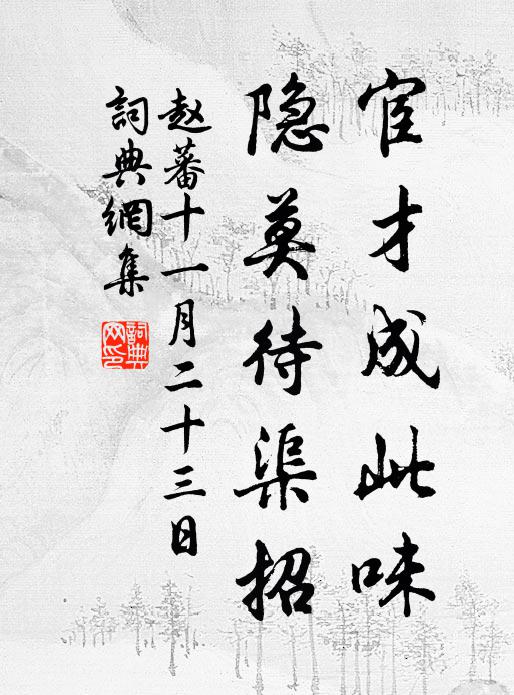 宦才成此味
隐莫待渠招
赵蕃十一月二十三日
詞典網集
詞典網印